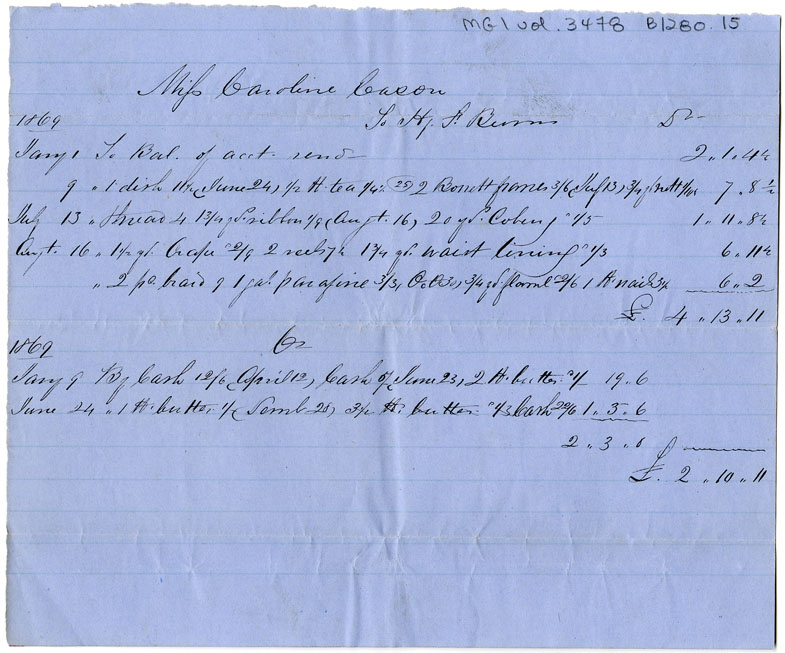 MG1 vol. 3478 B1280.15
Miss Caroline Cason
1869 To Hy. S. Burns Dr
Jany 1 To Bal. of acct. rend 2 " 1 " 4½
9 " 1 dish 11½ (June 24) ½ tt. tea (25) 2 Bonett frames 3/6 (July 13) 3/4 7 " 8½
July 13 " thread 4 1 3/4 yd ribbon 1/9 (Augt. 16) 20 yds Coburg @ 1/5 1 " 11 " 8½
Augt. 16 " 1½ yd. Crape @ 2/9 2 reels 7½ 1 3/4 yd. waist lining @ 1/3 6 " 11½
" 2 ps. braid 9 1 gal. parafine 3/3 (Oct 30) 3/4 yd flannel @ 2/6 1 tt. nails 3½ 6 " 2
£. 4 " 13 " 11
1869 Cr
Jany 9 By Cash 12/6 (April 12) Cash 5/ (June 23) 2 tt. butter @ 1/ 19 " 6
June 24 " 1 tt. butter 1/ (Semb. 25) 3½ tt. butter @ 1/3 Cash 20/ 1 " 3 " 6
2 " 3 " 0
£. 2 " 10 " 11